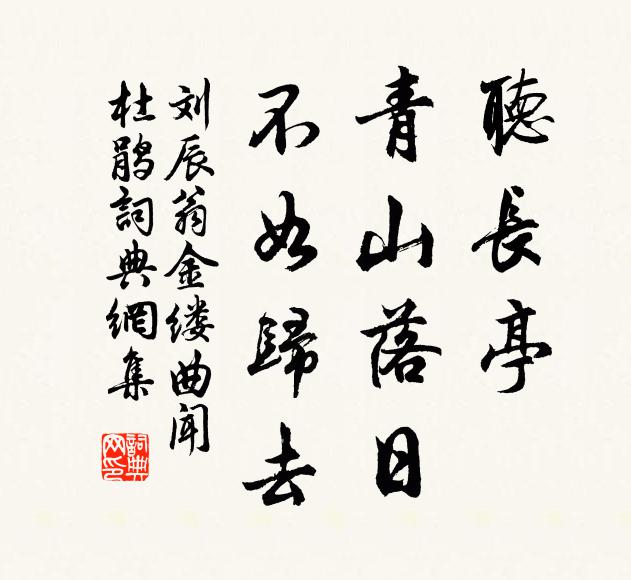 聽長亭
青山落日
不如歸去
刘辰翁金缕曲闻
杜鹃詞典網集
詞典网印